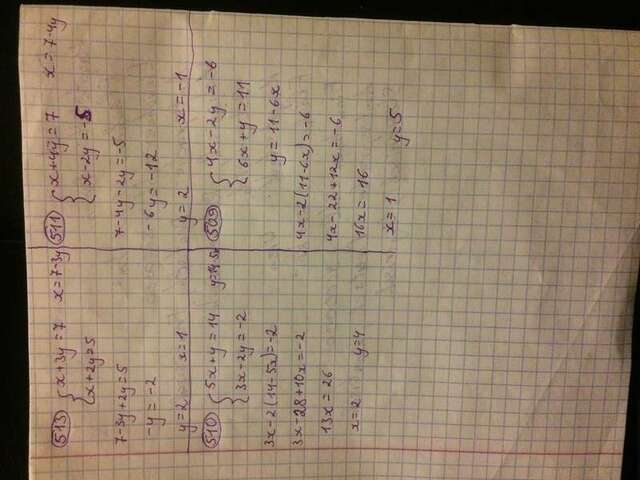 513 { x+3y=7 x=7-3y
x+2y=5
7-3y+2y=5
-y=-2
y=2 x=1
511 { x+4y=7 x=7-4y
x-2y=-5
7-4y-2y=-5
-6y=-12
y=2 x=-1
510 { 5x+y=14 y=14-5x
3x-2y=-2
3x-2(14-5x)=-2
3x-28+10x=-2
13x=26
x=2 y=4
509 { 4x-2y=-6
6x+y=11
y=11-6x
4x-2(11-6x)=-6
4x-22+12x=-6
16x=16
x=1 y=5